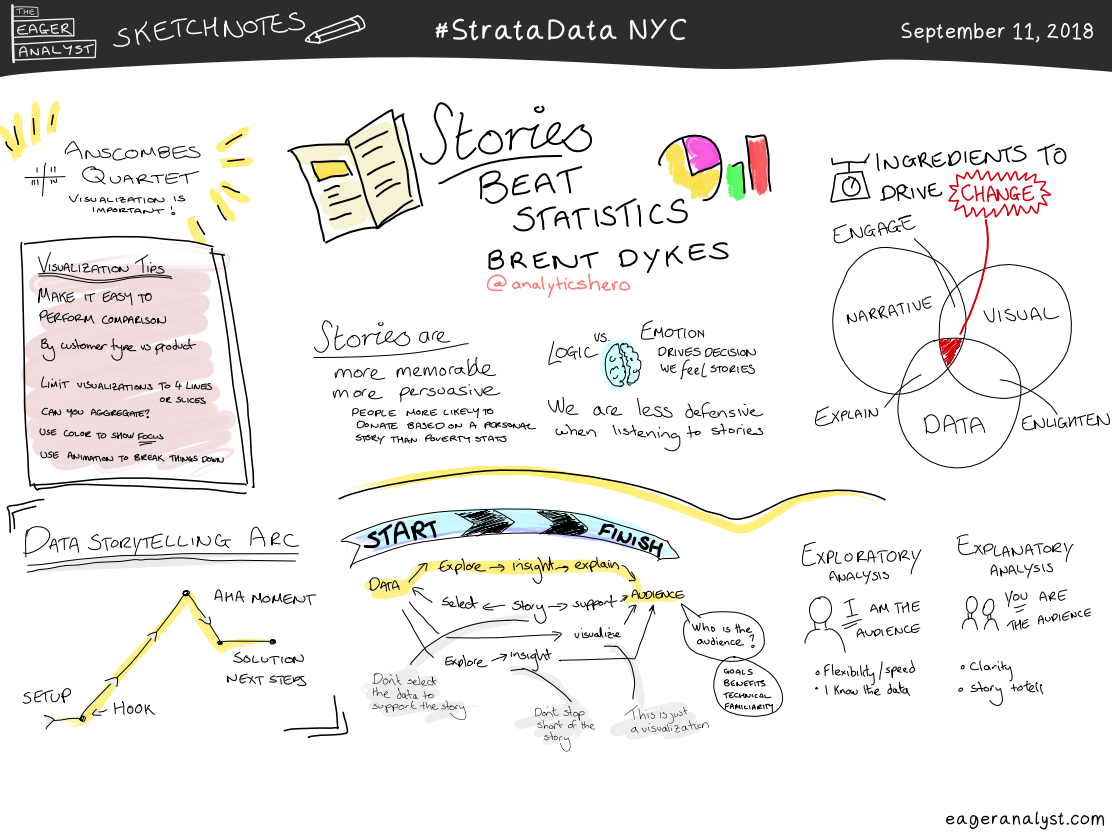 THE
EAGER
ANALYST
SKETCHNOTES
#StrataData NYC
September 11, 2018
ANSCOMBES
QUARTET
VISUALIZATION IS
IMPORTANT!
I II
III IV
VISUALIZATION TIPS
MAKE IT EASY TO
PERFORM COMPARISON
By customer type vs product
LIMIT VISUALIZATIONS TO 4 LINES
OR SLICES
CAN YOU AGGREGATE?
USE COLOR TO SHOW FOCUS
USE ANIMATION TO BREAK THINGS DOWN
Stories
BEAT
STATISTICS
BRENT DYKES
@analyticshero
Stories are
more memorable
more persuasive
PEOPLE MORE LIKELY TO
DONATE BASED ON A PERSONAL
STORY THAN POVERTY STATS
LOGIC
VS.
EMOTION
DRIVES DECISION
WE feel STORIES
We are less defensive
when listening to stories
INGREDIENTS TO
DRIVE CHANGE
ENGAGE
NARRATIVE
VISUAL
EXPLAIN
DATA
ENLIGHTEN
DATA STORYTELLING ARC
AHA MOMENT
SOLUTION
NEXT STEPS
SETUP
HOOK
START
FINISH
DATA
Explore → insight → explain
AUDIENCE
Select ← story → support
visualize
Explore → insight
Don't select
the data to
support the story
Don't stop
short of the
story
This is just
a visualization
Who is the
audience?
GOALS
BENEFITS
TECHNICAL
FAMILIARITY
EXPLORATORY
ANALYSIS
I AM THE
AUDIENCE
• Flexibility/speed
• I know the data
EXPLANATORY
ANALYSIS
YOU ARE
THE AUDIENCE
• Clarity
• story to tell
eageranalyst.com